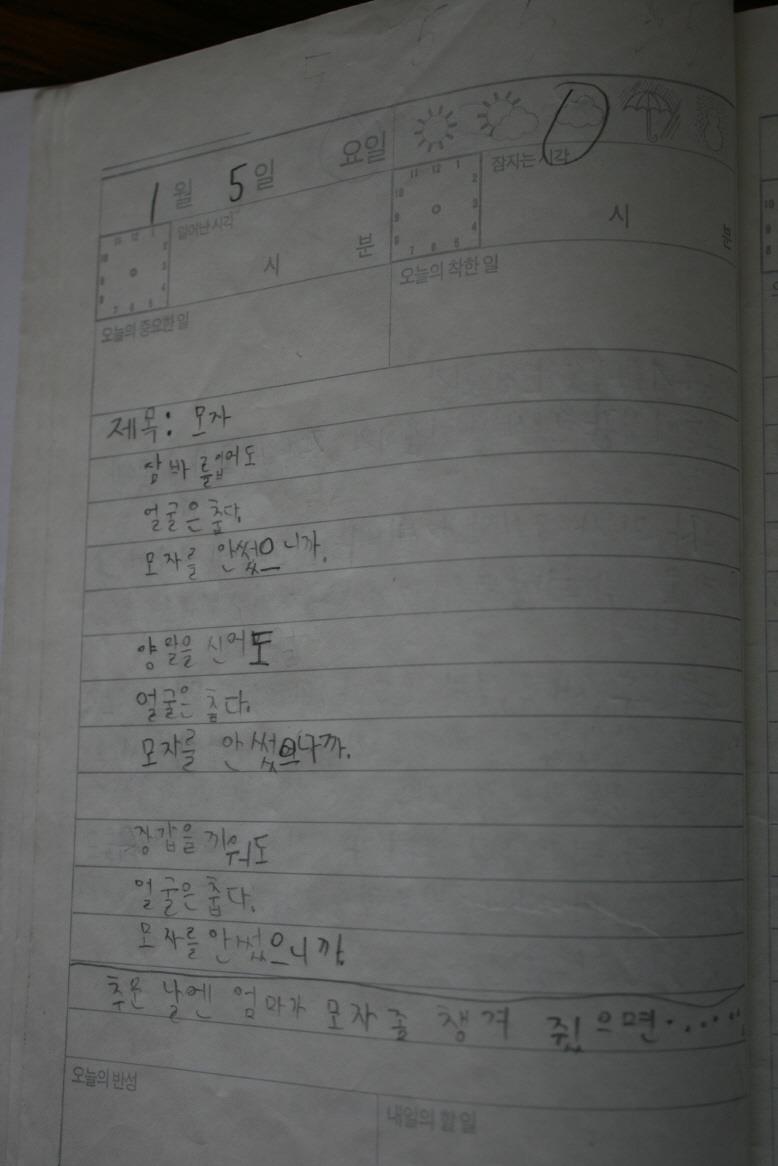 1월 5일 요일
일어난 시각 시 분
잠자는 시각 시 분
11 12 1
10 2
9 3
8 4
7 6 5
11 12 1
10 2
9 3
8 4
7 6 5
오늘의 중요한 일
오늘의 착한 일
제목: 모자
잠바를 입어도
얼굴은 춥다.
모자를 안썼으니까.
양말을 신어도
얼굴은 춥다.
모자를 안썼으니까.
장갑을 끼워도
얼굴은 춥다.
모자를 안썼으니까
추운 날엔 엄마가 모자 좀 챙겨 줬으면......
오늘의 반성
내일의 할 일